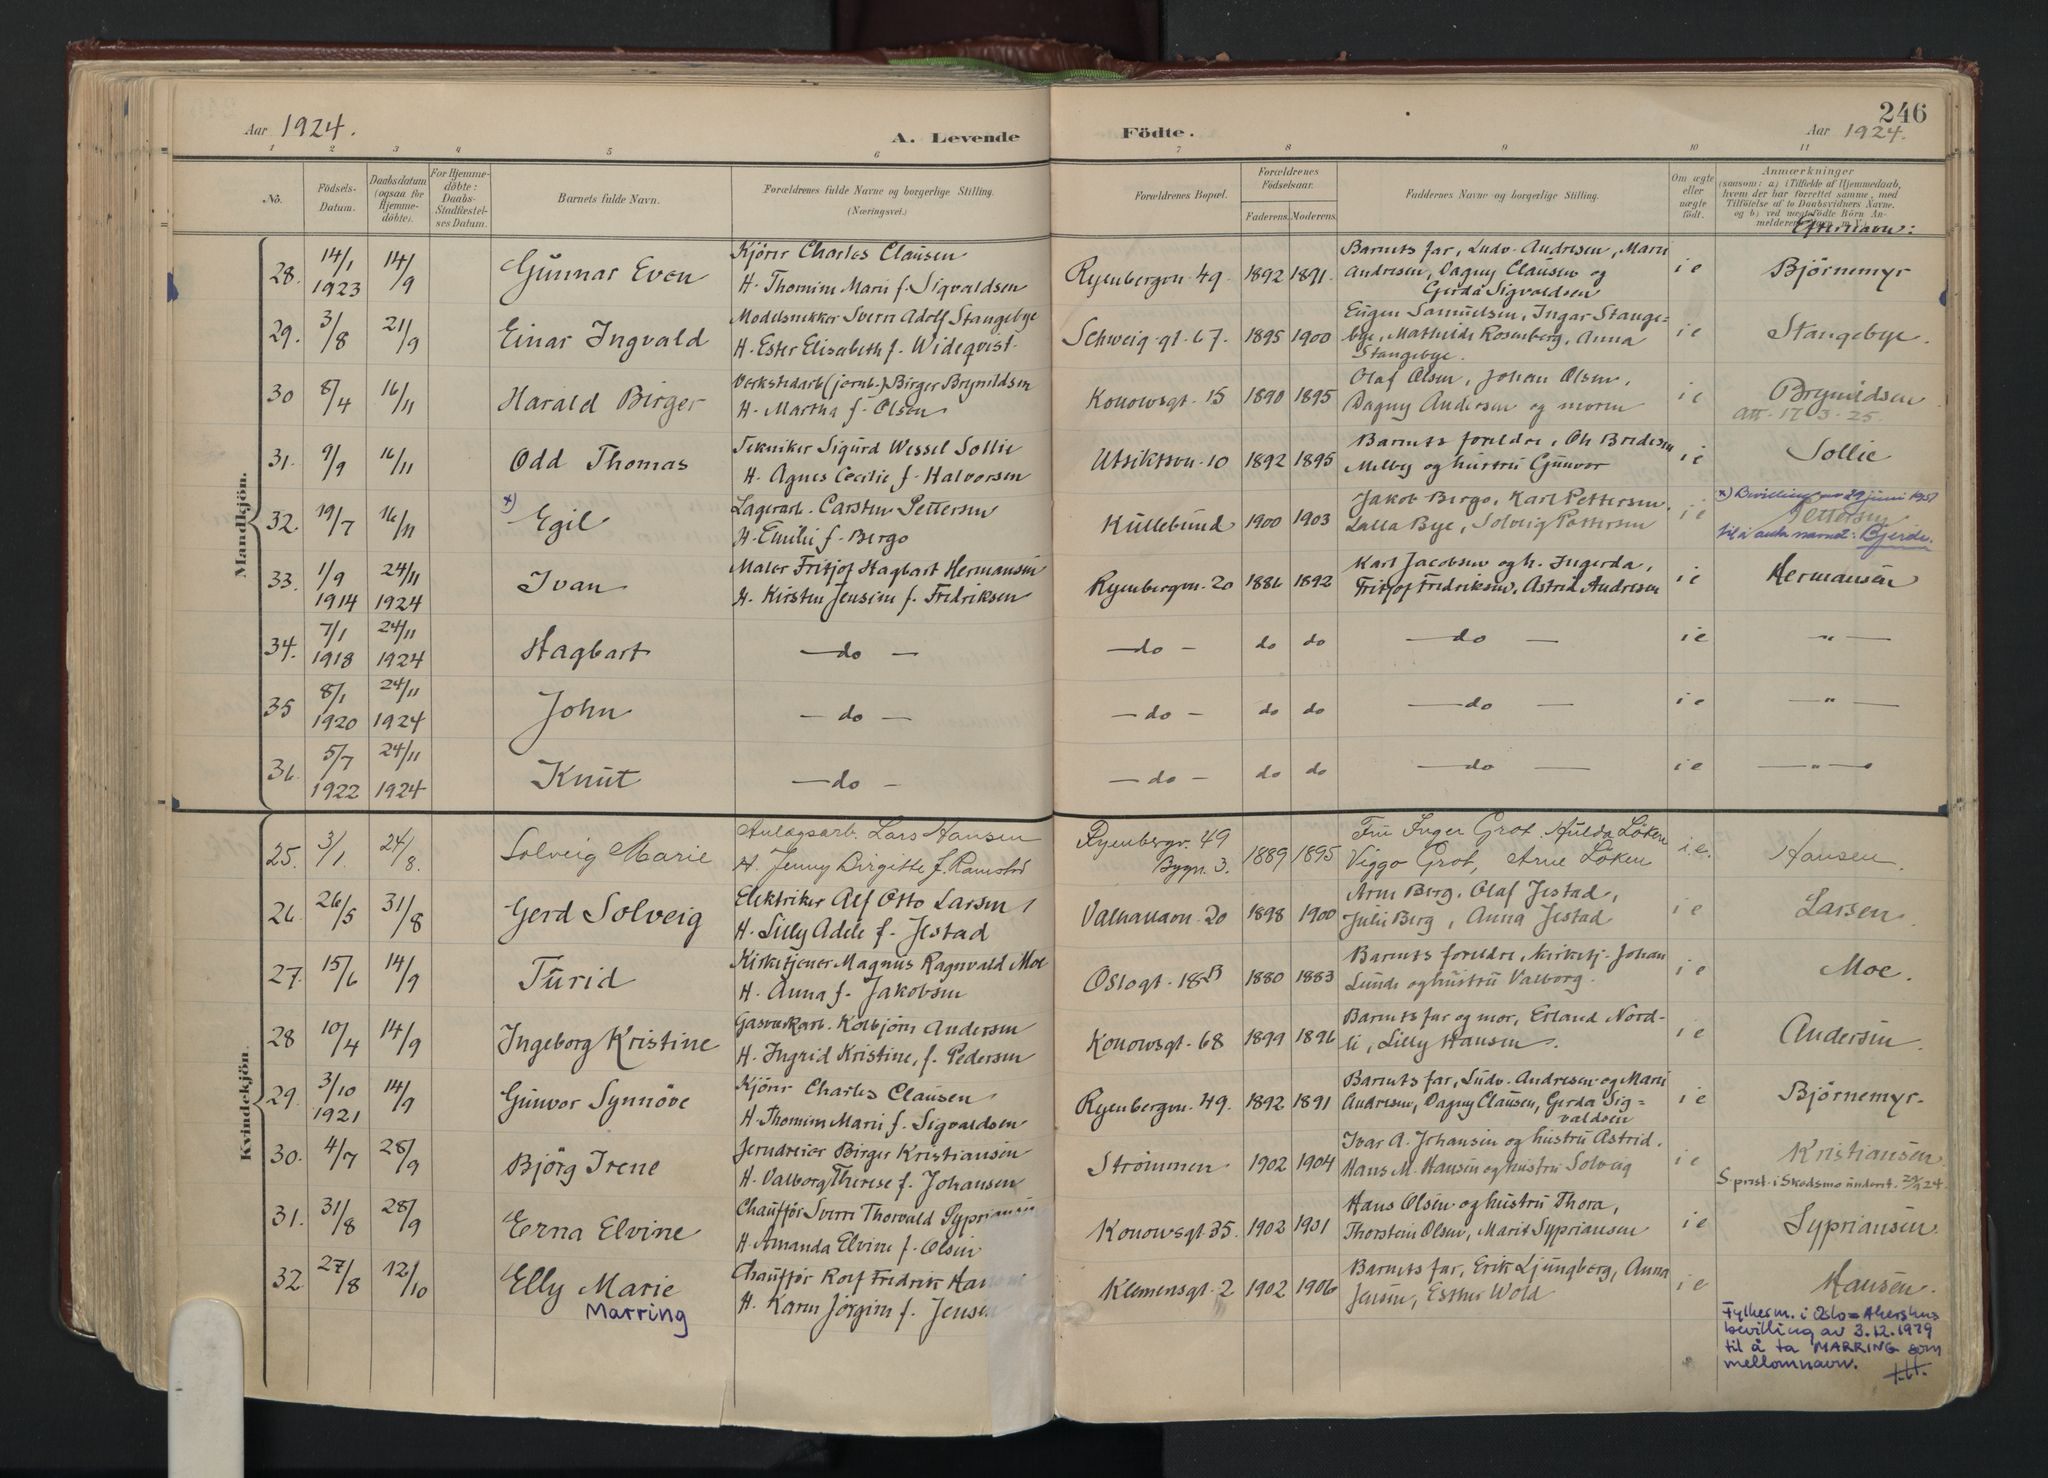 246
Aar 1924.
A. Levende
Födte.
Aar 1924.
1 2 3 4 5 6 7 8 9 10 11
No.
Födsels-
Datum.
Daabsdatum
(ogsaa for
Hjemme-
döbte).
For Hjemme-
döbte:
Daabs-
Stadfestel-
ses Datum.
Barnets fulde Navn.
Forældrenes fulde Navne og borgerlige Stilling.
(Næringsvei.)
Forældrenes Bopæl.
Forældrenes
Födselsaar.
Faderens. Moderens.
Faddernes Navne og borgerlige Stilling.
Om ægte
eller
uægte
födt.
Anmærkninger
(saasom: a) i Tilfælde af Hjemmedaab,
hvem der har forrettet samme, med
Tilföielse af to Daabsvidners Navne.
og b) ved uægtefödte Börn An-
Efternavn:
Mandkjön.
28. 14/1 1923 14/9 Gunnar Even
Kjörer Charles Clausen
H. Thomine Marie f. Sigvaldsen
Ryenbergvn. 49. 1892 1891.
Barnets far, Ludv. Andresen, Marie
Andresen, Dagny Clausen og
Gerda Sigvaldsen
i e Björnemyr
29. 3/8 21/9 Einar Ingvald
Modelsnekker Sverre Adolf Stangebye
H. Ester Elisabeth f. Wideqvist.
Schweig. gt. 67. 1895 1900
Eugen Samuelsen, Ingar Stange-
bye, Mathilde Rosenberg, Anna
Stangebye.
i e Stangebye.
30 8/4 16/11 Harald Birger
Verkstedarb. (jernb.) Birger Brynildsen
H. Martha f. Olsen
Konowsgt. 15 1890 1895
Olaf Olsen, Johan Olsen,
Dagny Andersen og moren
i e Brynildsen
Att. 17-3-25.
31. 9/9 16/11 Odd Thomas
Tekniker Sigurd Wessel Sollie
H. Agnes Cecilie f. Halvorsen
Utsiktsvn. 10 1892 1895
Barnets foreldre, Oh. Bredesen
Melby og hustru Gunvor
i e Sollie
32. 19/7 16/11 x) Egil
Lagerarb. Carsten Pettersen
H. Emilie f. Bergo
Kullebund 1900 1903
Jakob Bergo, Karl Pettersen,
Lalla Bye, Solveig Pettersen
i e x) Bevilling av 29 juni 1951
Pettersen
til å anta navnet: Bjerde.
33. 1/9 1914 24/11 1924 Ivan
Maler Fritjof Hagbart Hermansen
H. Kirsten Jensine f. Fredriksen
Ryenbergvn. 20 1886 1892
Karl Jacobsen og h. Ingerda,
Fritjof Fredriksen, Astrid Andresen
i e Hermansen
34. 7/1 1918 24/11 1924 Hagbart — do — — do — do do — do — i e — " —
35 8/1 1920 24/11 1924 John — do — — do — do do — do — i e — " —
36. 5/7 1922 24/11 1924 Knut — do — — do — do do — do — i e — " —
Kvindekjön.
25. 3/1. 24/8. Solveig Marie
Anlægsarb. Lars Hansen
H. Jenny Birgitte f. Ramstad
Ryenbergv. 49
Bygn. 3. 1889 1895
Fru Inger Grot, Hulda Löken
Viggo Grot, Arne Löken
i.e. Hansen.
26. 26/5 31/8 Gerd Solveig
Elektriker Alf Otto Larsen
H. Lilly Adele f. Jestad
Valhallavn. 20 1898 1900
Arne Berg, Olaf Jestad,
Juli Berg, Anna Jestad
i e Larsen.
27. 15/6 14/9 Turid
Kirketjener Magnus Ragnvald Moe
H. Anna f. Jakobsen
Oslogt. 18B 1880 1883
Barnets foreldre, kirketj. Johan
Lunde og hustru Valborg.
i e Moe.
28 10/4 14/9 Ingeborg Kristine
Gasverkarb. Kolbjörn Andersen
H. Ingrid Kristine, f. Pedersen
Konowsgt. 68 1899 1896
Barnets far og mor, Erland Nord-
li, Lilly Hansen.
i e Andersen.
29. 3/10 1921 14/9 Gunvor Synnöve
Kjörer Charles Clausen
H. Thomine Marie f. Sigvaldsen
Ryenbergvn. 49. 1892 1891
Barnets far, Ludv. Andresen og Marie
Andresen, Dagny Clausen, Gerda Sig-
valdsen
i e Björnemyr.
30. 4/7 28/9 Björg Irene
Jerndreier Birger Kristiansen
H. Valborg Therese f. Johansen
Strömmen 1902 1904
Ivar A. Johansen og hustru Astrid.
Hans M. Hansen og hustru Solveig
i e Kristiansen.
S.prest. i Skedsmo underret. 29/9 24.
31. 31/8 28/9 Erna Elvine
Chaufför Sverre Thorvald Sypriansen
H. Amanda Elvine f. Olsen
Konowsgt. 35. 1902 1901
Hans Olsen og hustru Thora,
Thorstein Olsen, Marit Sypriansen
i e Sypriansen.
32 27/8 12/10 Elly Marie
Marring
Chaufför Rolf Fredrik Hansen
H. Karen Jörgine f. Jensen
Klemensgt. 2 1902 1906
Barnets far, Erik Ljungberg, Anna
Jensen, Esther Wold
i e Hansen.
Fylkesm. i Oslo=Akershus
bevilling av 3.12.1979
til å ta MARRING som
mellomnavn.